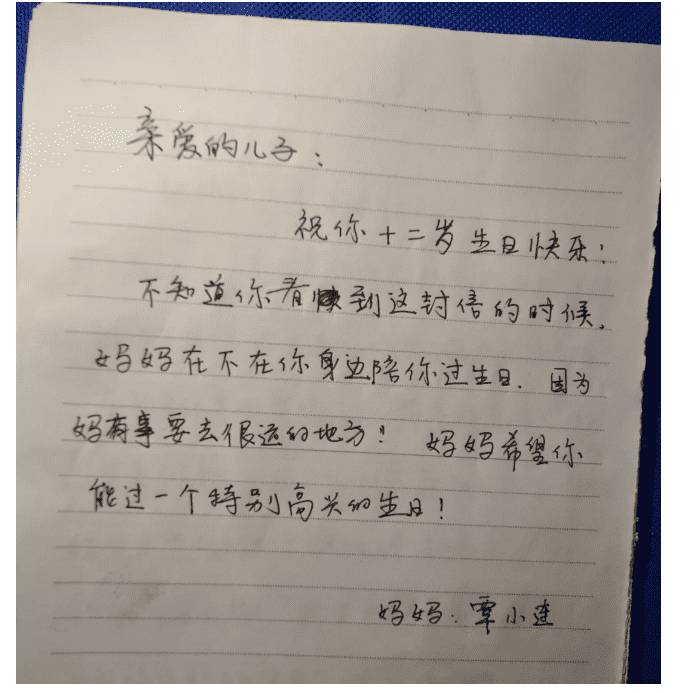 亲爱的儿子：
祝你十二岁生日快乐！
不知道你看到这封信的时候，
妈妈在不在你身边陪你过生日．因为
妈有事要去很远的地方！ 妈妈希望你
能过一个特别高兴的生日！
妈妈：覃小连